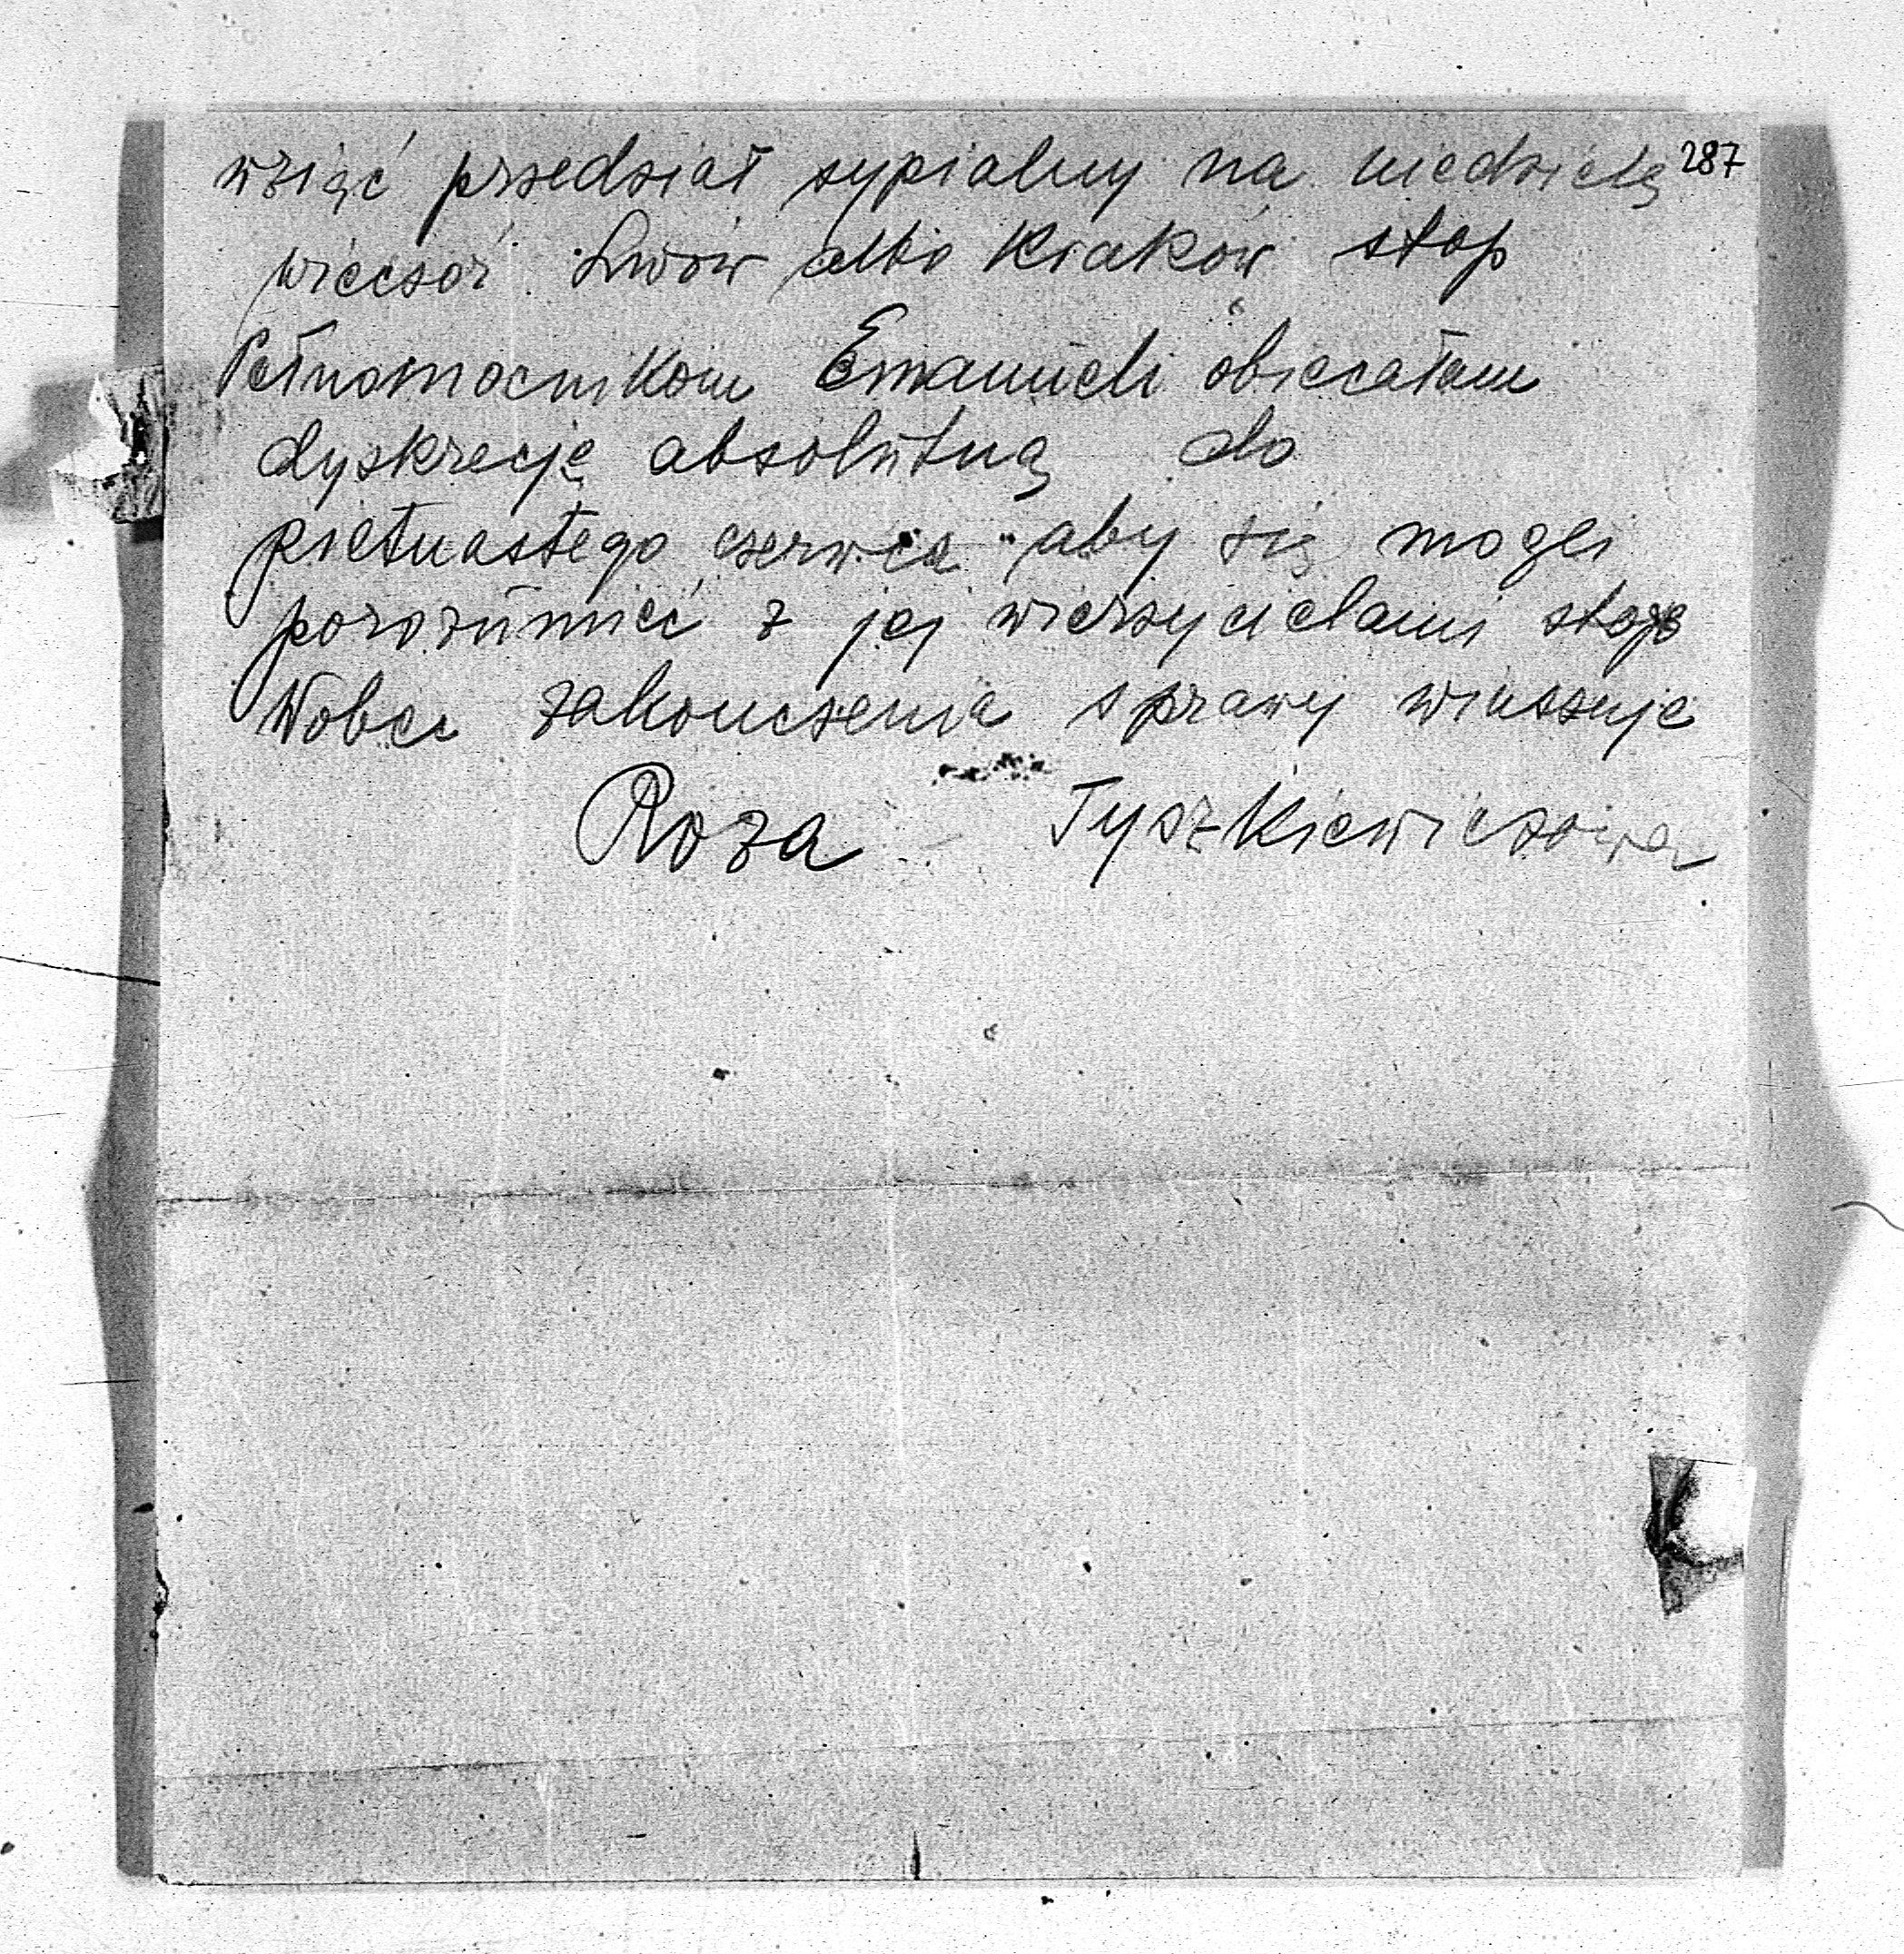 wziąć przedział sypialny na niedzielę 287
wieczór Lwów albo Kraków stop
Pełnomocnikom Emanueli obiecałam
dyskrecję absolutną do
pietnastego czerwca aby się mogli
porozumieć z jej wierzycielami stop
Wobec zakonczenia sprawy winszuje
Roza Tyszkiewiczowa